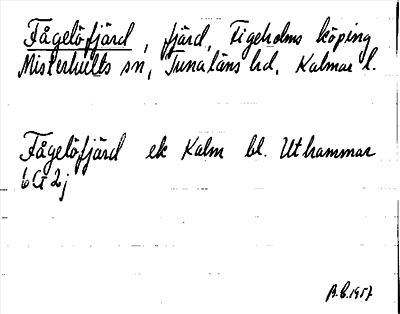 Fågelöfjärd, fjärd, Figeholms köping
Misterhults sn, Tunaläns hd, Kalmar l.
Fågelöfjärd ek Kalm bl. Uthammar
6G2j
B.E. 1957